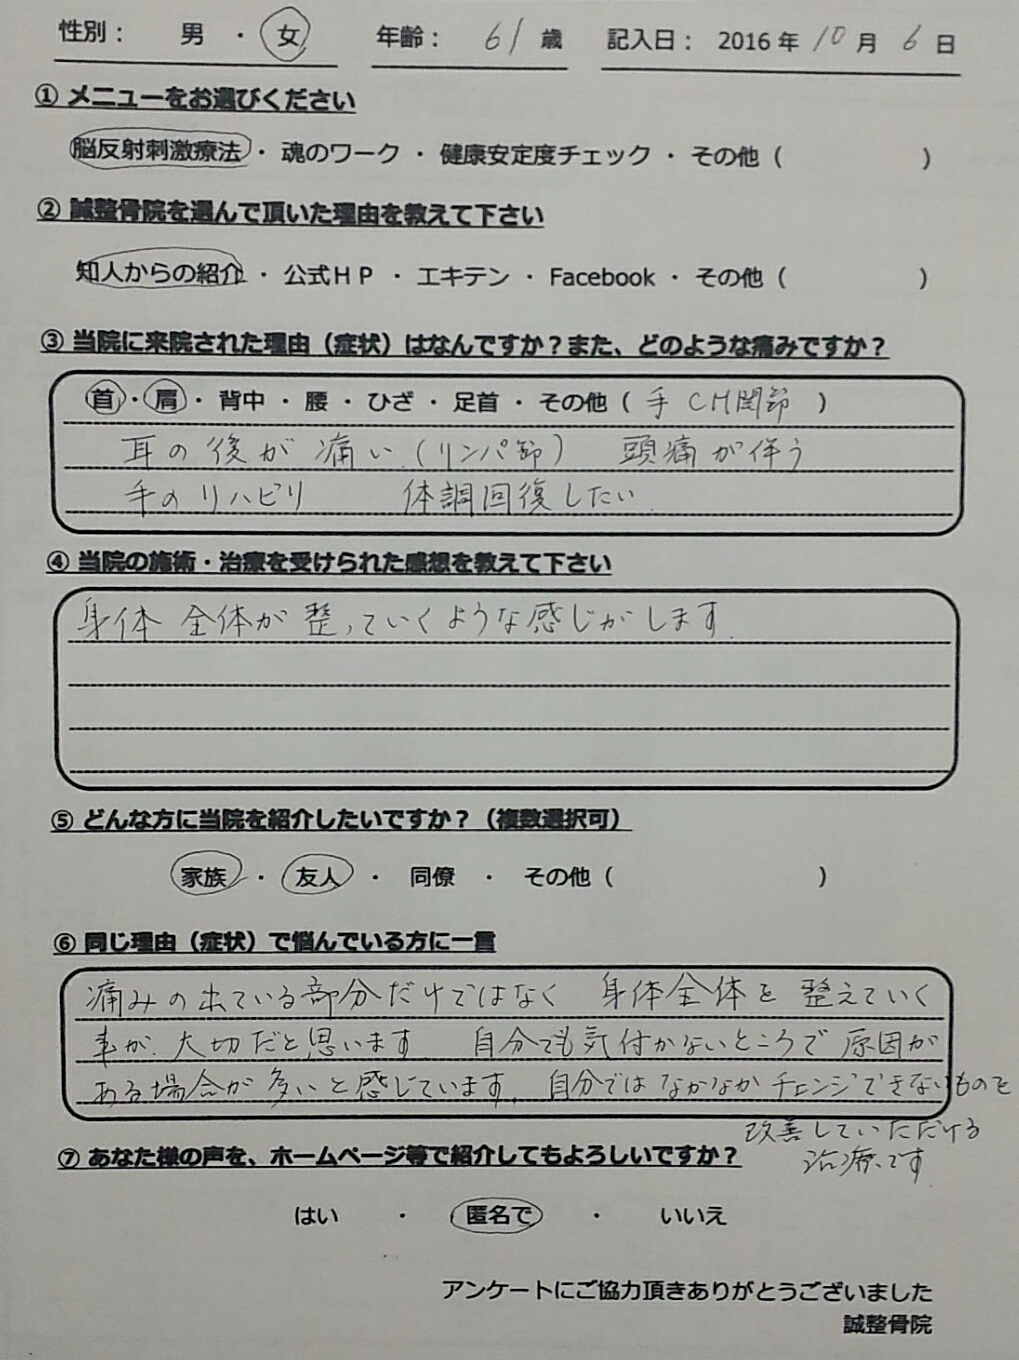 性別： 男 ・ 女 年齢： 61 歳 記入日： 2016 年 10 月 6 日
① メニューをお選びください
脳反射刺激療法 ・ 魂のワーク ・ 健康安定度チェック ・ その他（ ）
② 誠整骨院を選んで頂いた理由を教えて下さい
知人からの紹介 ・ 公式ＨＰ ・ エキテン ・ Facebook ・ その他（ ）
③ 当院に来院された理由（症状）はなんですか？また、どのような痛みですか？
首 ・ 肩 ・ 背中 ・ 腰 ・ ひざ ・ 足首 ・ その他（ 手 CM関節 ）
耳の後が痛い（リンパ節） 頭痛が伴う
手のリハビリ 体調回復したい
④ 当院の施術・治療を受けられた感想を教えて下さい
身体 全体が 整っていくような感じがします
⑤ どんな方に当院を紹介したいですか？（複数選択可）
家族 ・ 友人 ・ 同僚 ・ その他（ ）
⑥ 同じ理由（症状）で悩んでいる方に一言
痛みの出ている部分だけではなく 身体全体を 整えていく
事が 大切だと思います 自分でも気付かないところで 原因が
ある場合が多いと感じています。自分では なかなか チェンジできないものを
改善していただける
治療です
⑦ あなた様の声を、ホームページ等で紹介してもよろしいですか？
はい ・ 匿名で ・ いいえ
アンケートにご協力頂きありがとうございました
誠整骨院